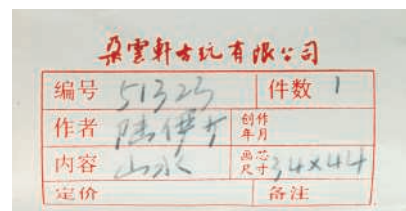 朵云轩古玩有限公司
编号 51323 件数 1
作者 陆俨少 创作年月
内容 山水 画芯尺寸 34×44
定价 备注